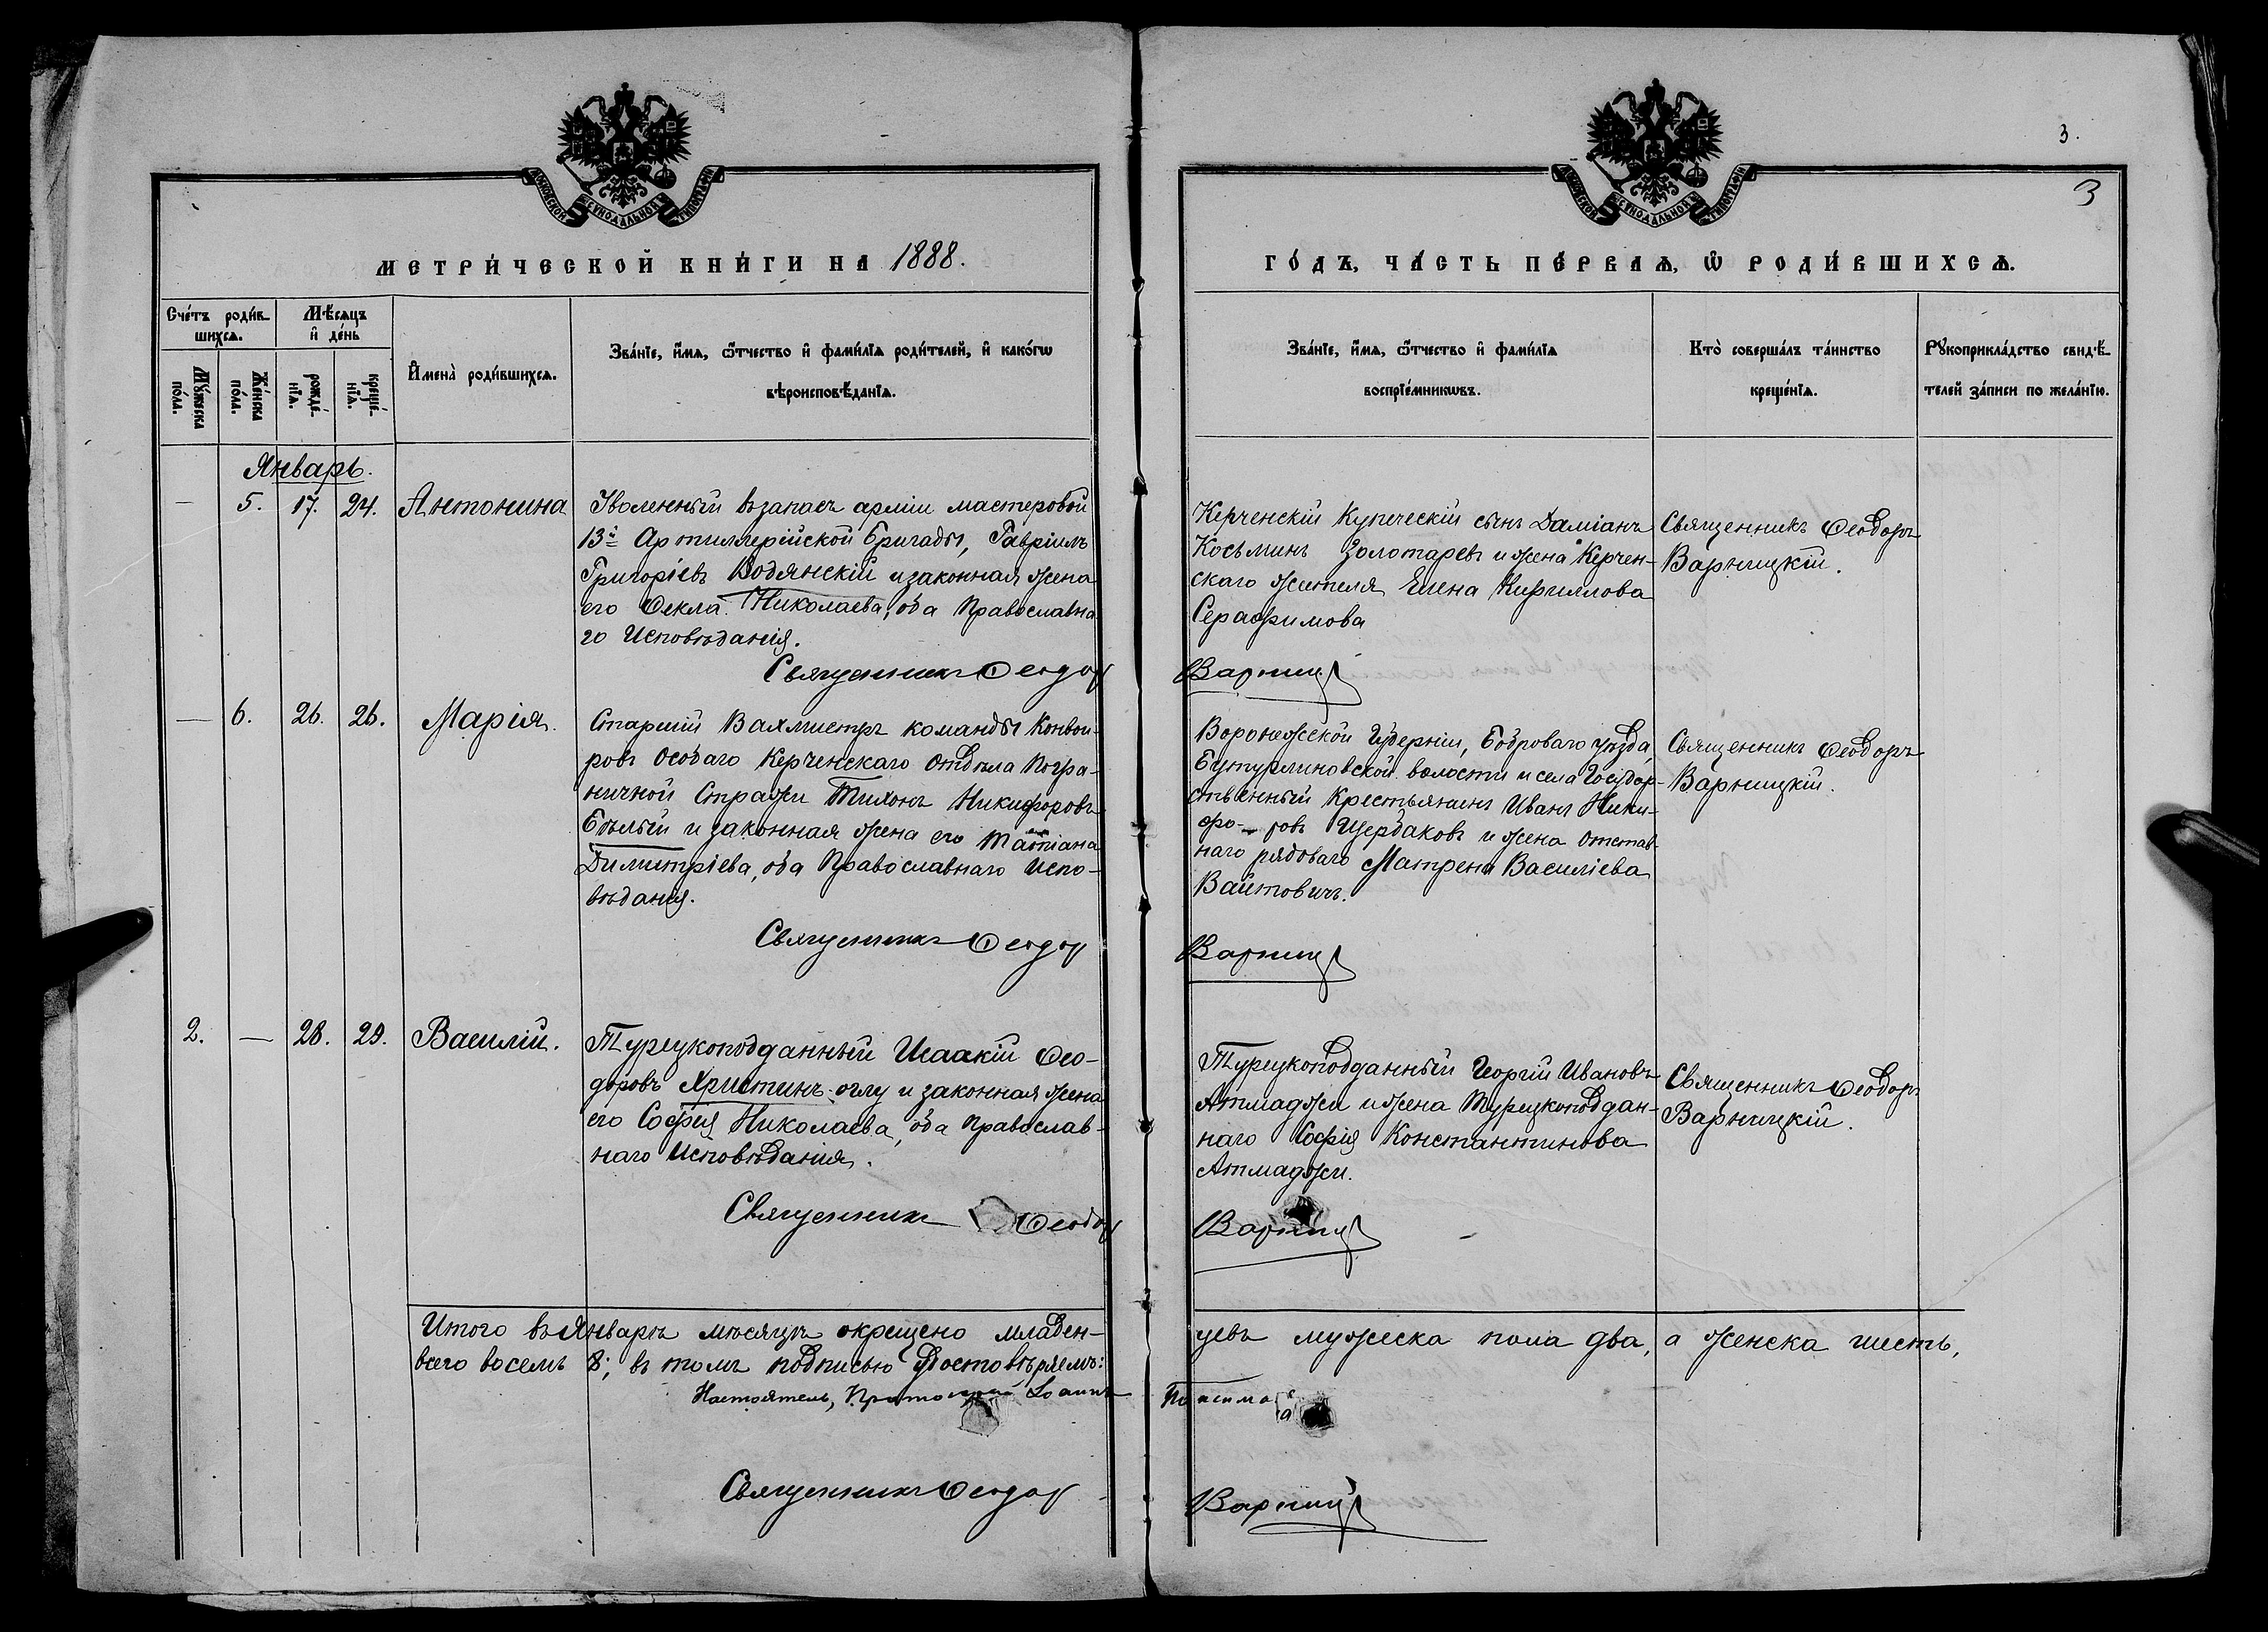 3.
3
МОСКОВСКОЙ СѴНОДАЛЬНОЙ ТИПОГРАФІИ
МОСКОВСКОЙ СѴНОДАЛЬНОЙ ТИПОГРАФІИ
МЕТРИ́ЧЕСКОЙ КНИ́ГИ НА 1888.
ГО́ДЪ, ЧА́СТЬ ПЕ́РВАѦ, Ѡ҆ РОДИ́ВШИХСѦ.
Сче́тъ роди́в-
шихсѧ.
Мѣ́сѧцъ
и҆ де́нь
Мꙋ́жеска
по́ла.
Же́нска
по́ла.
рожде́-
нїѧ.
креще́-
нїѧ.
И҆мена̀ роди́вшихсѧ.
Зва́нїе, и҆́мѧ, ѻ҆́тчество и҆ фами́лїѧ роди́телей, и҆ како́гѡ
вѣроисповѣ́данїѧ.
Зва́нїе, и҆́мѧ, ѻ҆́тчество и҆ фами́лїѧ
воспрїе́мникѡвъ.
Кто̀ соверша́лъ та́инство
креще́нїѧ.
Рꙋкоприкла́дство свидѣ́-
телей за́писи по жела́нїю.
Январь.
— 5. 17. 24. Антонина
Уволенный въ запасъ арміи мастеровой
13й Артиллерійской бригады, Гавріилъ
Григоріевъ Водянскій и законная жена
его Ѳекла Николаева, оба Православна
го Исповѣданія.
Священникъ Ѳеодоръ
Керченскій Купеческій сынъ Даміанъ
Косьминъ Золотаревъ и жена Керчен-
скаго жителя Елена Кириллова
Серафимова
Варниц
Священникъ Ѳеодоръ
Варницкій.
— 6. 26. 26. Марія.
Старшій Вахмистръ команды Конвои-
ровъ Особаго Керченскаго Отдѣла Погра-
ничной Стражи Тихонъ Никифоровъ
Бѣлый и законная жена его Татіана
Димитріева, оба Православнаго Испо-
вѣданія.
Священникъ Ѳеодоръ
Воронежской Губерніи, Боброваго уѣзда,
Бутурлиновской волости и села Государ-
ственный Крестьянинъ Иванъ Ники-
фо- ровъ Щербаковъ и жена Отстав-
наго рядоваго Матрена Василіева
Вайтовичъ.
Варниц
Священникъ Ѳеодоръ
Варницкій.
2. — 28. 29. Василій.
Турецкоподданный Исаакій Ѳео-
доровъ Христинъ-оглу и законная жена
его Софія Николаева, оба Православ-
наго Исповѣданія.
Священникъ Ѳеодоръ
Турецкоподданный Георгій Ивановъ
Атмаджи и жена Турецкоподдан-
наго Софія Константинова
Атмаджи.
Варниц
Священникъ Ѳеодоръ
Варницкій.
Итого въ Январѣ мѣсяцѣ окрещено младен-
цевъ мужеска пола два, а женска шесть,
всего восемь 8; въ томъ подписью удостовѣряемъ:
Настоятель, Протоіерей Іоаннъ
Священникъ Ѳеодоръ
Варниц